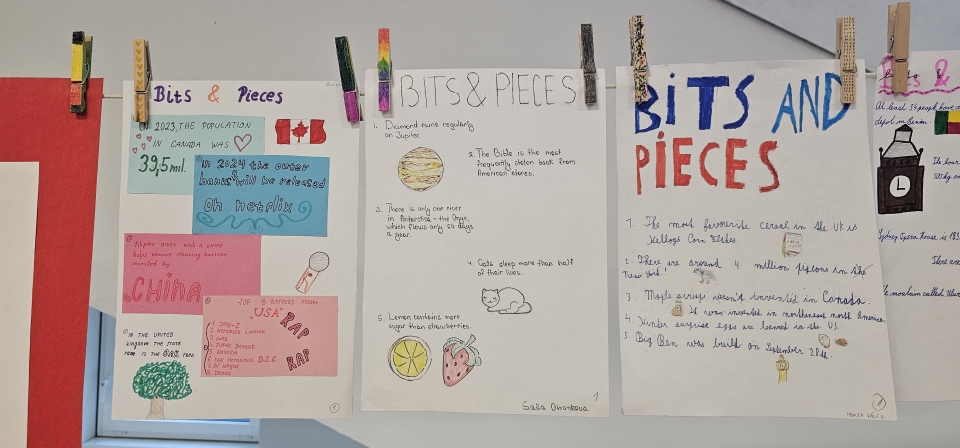 Bits & Pieces
IN 2023, THE POPULATION
IN CANADA WAS
39,5 mil.
In 2024 the outer
banks 4 will be released
On netflix
helps remove
invented by
CHINA
TOP 8 RAPPERS FROM
"USA"
RAP
RAP
1. JAY-Z
2. KENDRICK LAMAR
3. NAS
4. TUPAC SHAKUR
5. EMINEM
6. THE NOTORIOUS B.I.G
7. LIL WAYNE
8. DRAKE
IN THE UNITED
KINGDOM THE STATE
TREE IS THE OAK TREE.
1
BITS & PIECES
1. Diamond rains regularly
on Jupiter.
2. The Bible is the most
frequently stolen book from
American stores.
3. There is only one river
in Antarctica - the Onyx,
which flows only 60 days
a year.
4. Cats sleep more than half
of their lives.
5. Lemon contains more
sugar than strawberries.
Saša
1
BITS AND
PIECES
1. The most favourite cereal in the UK is
Kellogs Corn Flakes.
2. There are around 4 million pigeons in the
New York!
3. Maple syrup wasn't invented in Canada.
It was invented in northeast north America.
4. Kinder surprise eggs are banned in the US.
5. Big Ben was built on September 28th.
1
&
At least 34 people have d
depot in Benin.
Its hour
Sydney Opera House is 185
There are
The mountain called